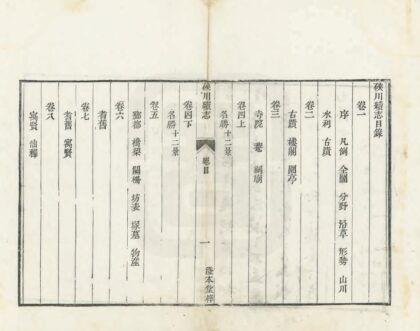 硤川續志目錄
卷一
序 凡例 全圖 分野 沿革 形勢 山川
水利 古蹟
卷二
古蹟 樓閣 園亭
卷三
寺院 菴 祠廟
卷四上
名勝十二景
硤川續志
總目
一
卷四下
名勝十二景
卷五
橋梁 關柵 坊表 塚墓 物產
卷六
耆舊
卷七
耆舊 寓賢
卷八
寓賢 仙釋